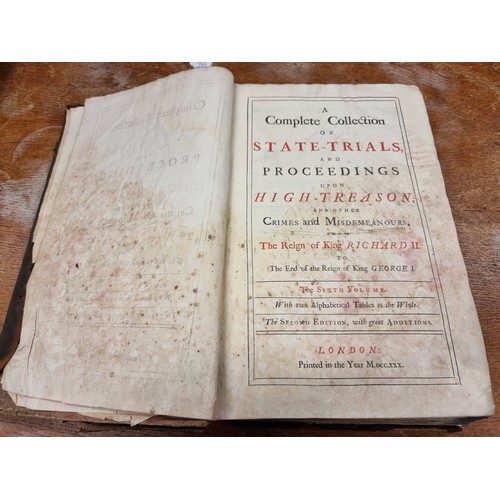 A
Complete Collection
OF
STATE-TRIALS,
AND
PROCEEDINGS
UPON
HIGH-TREASON,
AND OTHER
CRIMES and MISDEMEANOURS,
FROM
The Reign of King RICHARD II.
TO
The End of the Reign of King GEORGE I.
The SIXTH VOLUME.
With two Alphabetical Tables to the Whole.
The SECOND EDITION, with great ADDITIONS.
LONDON:
Printed in the Year M.DCC.XXX.